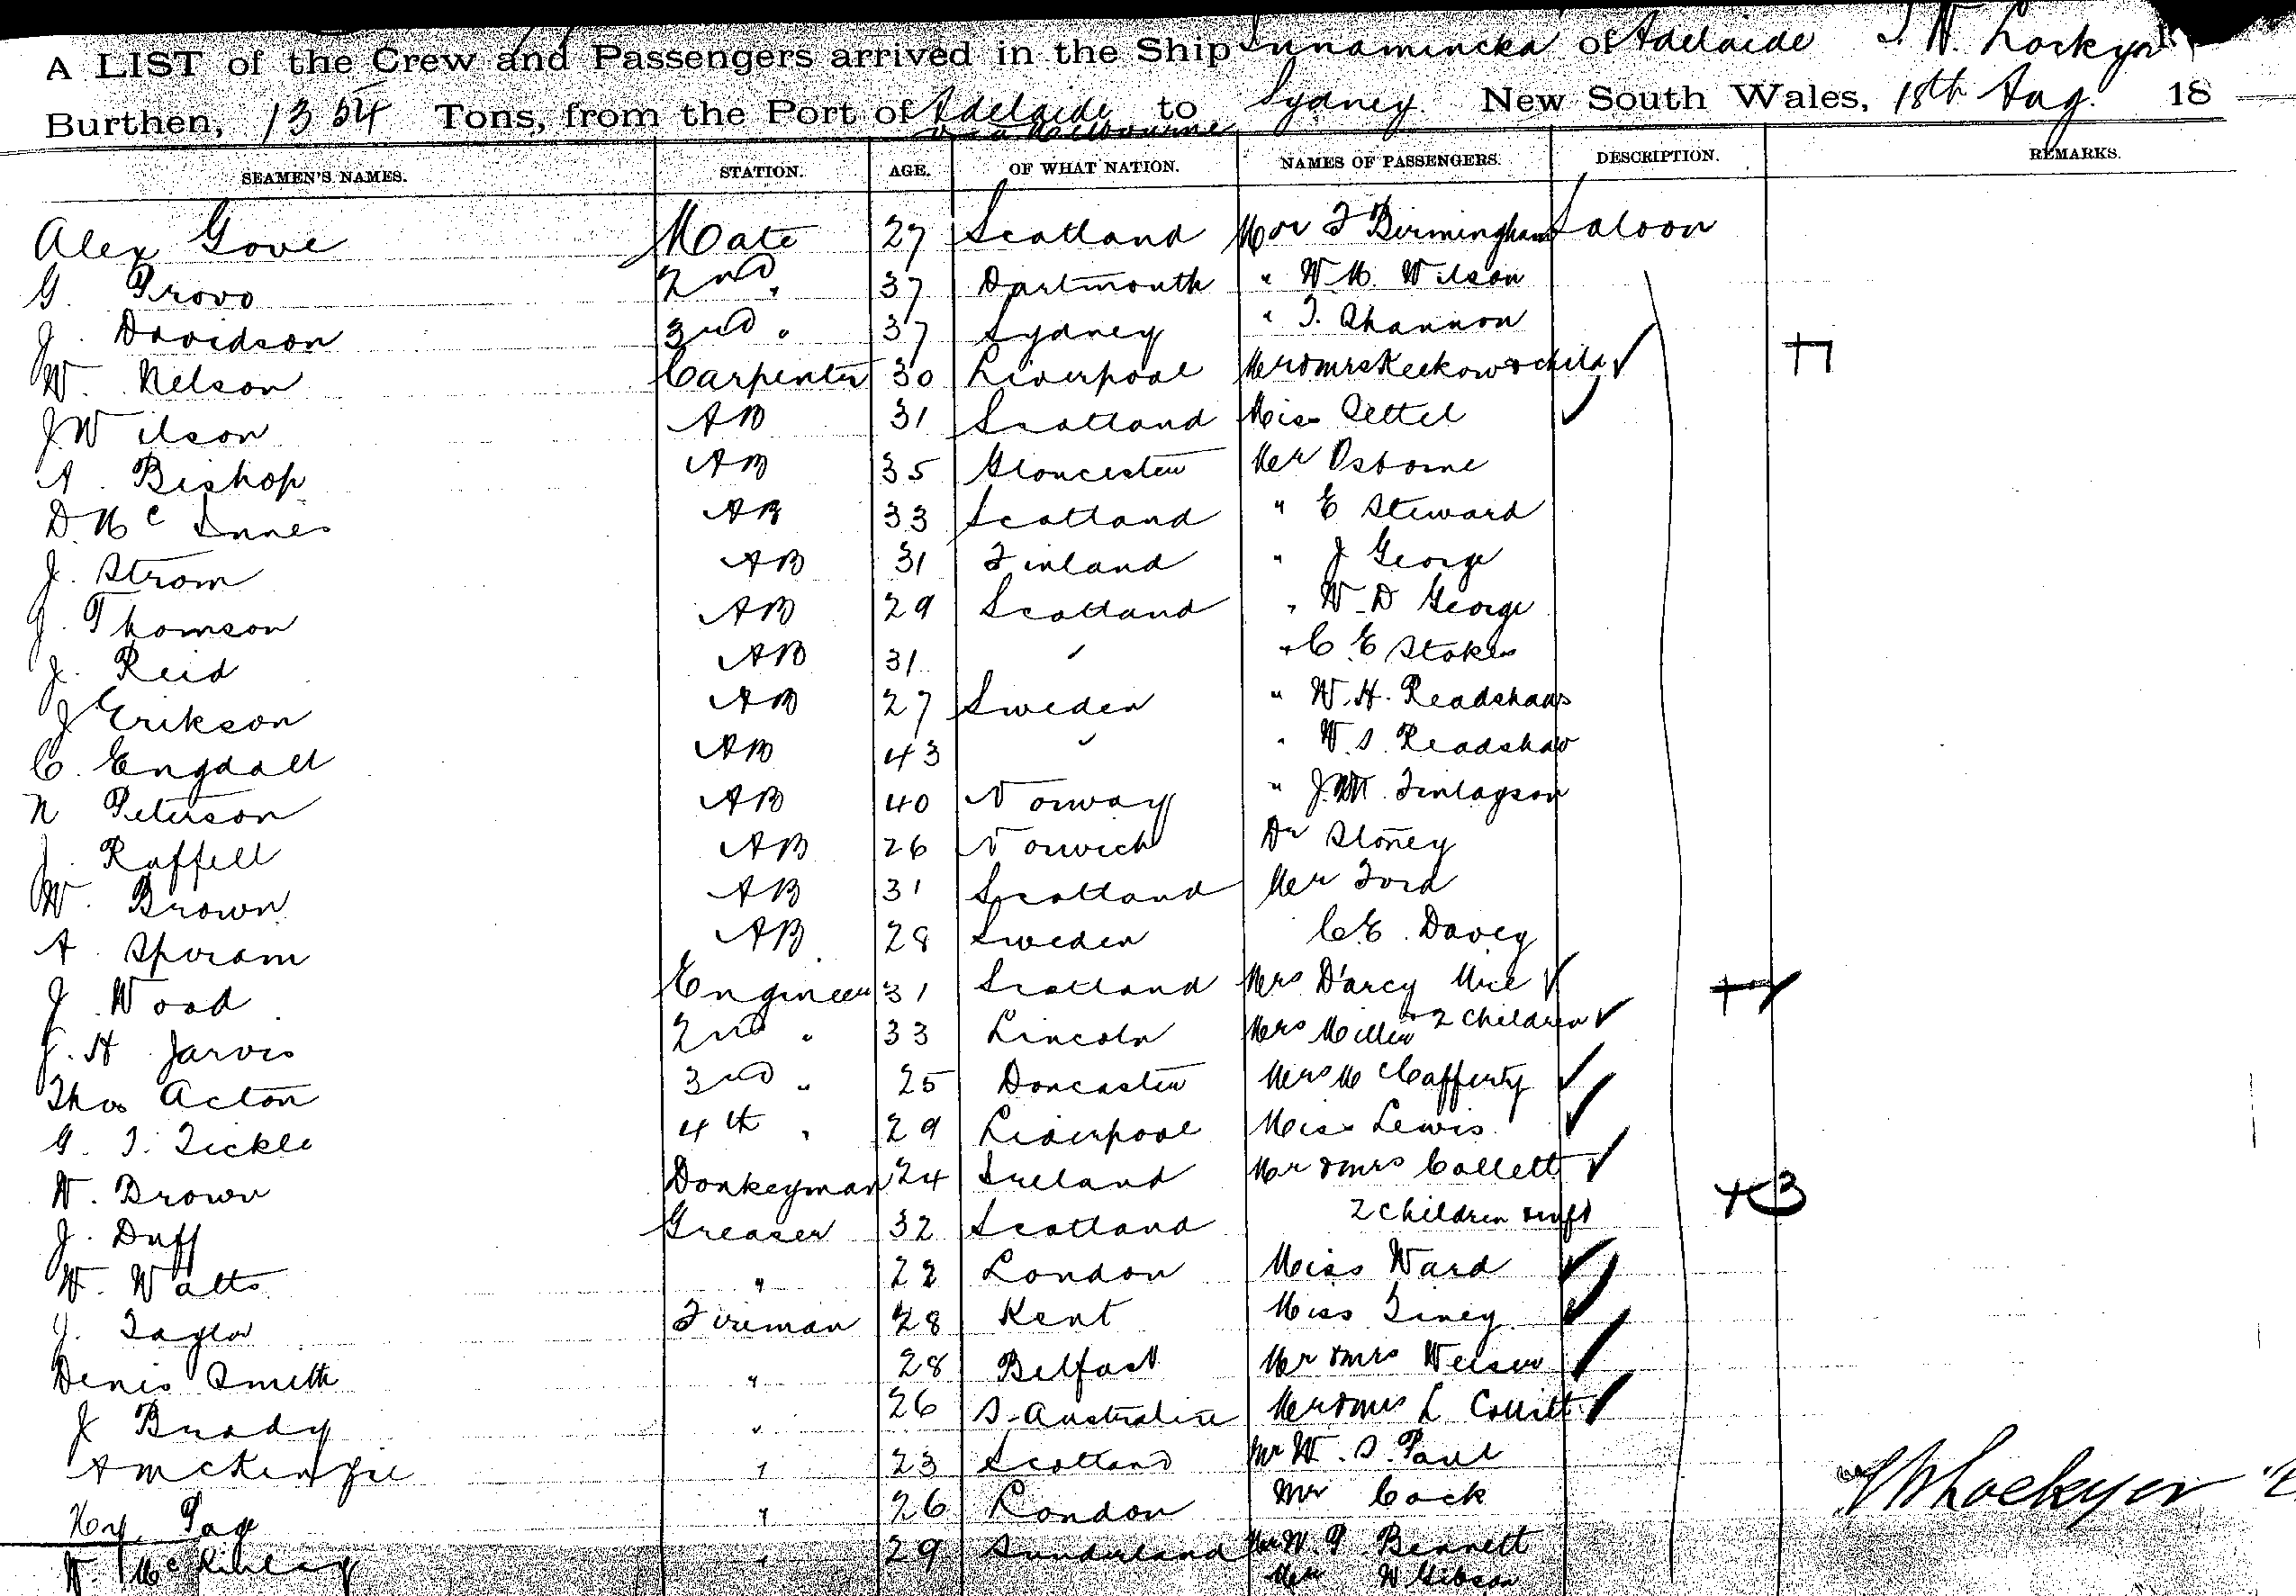 A LIST of the Crew and Passengers arrived in the Ship Innamincka of Adelaide J. W. Lockyer
Burthen, 1354 Tons, from the Port of Adelaide to Sydney New South Wales, 18th Aug. 18
via Melbourne
SEAMEN'S NAMES. STATION. AGE. OF WHAT NATION. NAMES OF PASSENGERS. DESCRIPTION. REMARKS.
Alex Gove Mate 27 Scotland Mr F Birmingham Saloon
G. Provo 2nd " 37 Dartmouth " W. M. Wilson
J. Davidson 3rd " 37 Sydney " T. Shannon
W. Nelson Carpenter 30 Liverpool Mr & Mrs Keekow & child
J Wilson AB 31 Scotland Miss Settel
A. Bishop AB 35 Gloucester Mr Osborne
D. McInnes AB 33 Scotland " E Steward
J. Strom AB 31 Finland " J George
J. Thomson AB 29 Scotland " W. D George
J. Reid AB 31 " " C E Stokes
J Erikson AB 27 Sweden " W. H. Readshaw
C. Engdall AB 43 " " W. S. Readshaw
N Peterson AB 40 Norway " J. Finlayson
J. Ruffell AB 26 Norwich Dr Stoney
W. Brown AB 31 Scotland Mr Ford
A. AB 28 Sweden C. E. Davey
J. Wood Engineer 31 Scotland Mrs D'arcy
J. H Jarvis 2nd " 33 Lincoln Mrs Miller & 2 Children
Thos Acton 3rd " 25 Doncaster Mrs McCafferty
G. T. Tickle 4th " 29 Liverpool Miss Lewis
W. Brown Donkeyman 24 Ireland Mr & Mrs Collett
J. Duff Greaser 32 Scotland 2 Children & inft
W. Watts " 22 London Miss Ward
J. Taylor Fireman 28 Kent Miss Tiney
Denis Smith " 28 Belfast Mr & Mrs
J Brady " 26 S. Australia Mr & Mrs L
A McKenzie " 23 Scotland Mr W. S. Paul
Hy. Page " 26 London Mr Cock
W. McKinlay " 29 Sunderland Mr W. P Bennett
Mr W Gibson
J W Lockyer